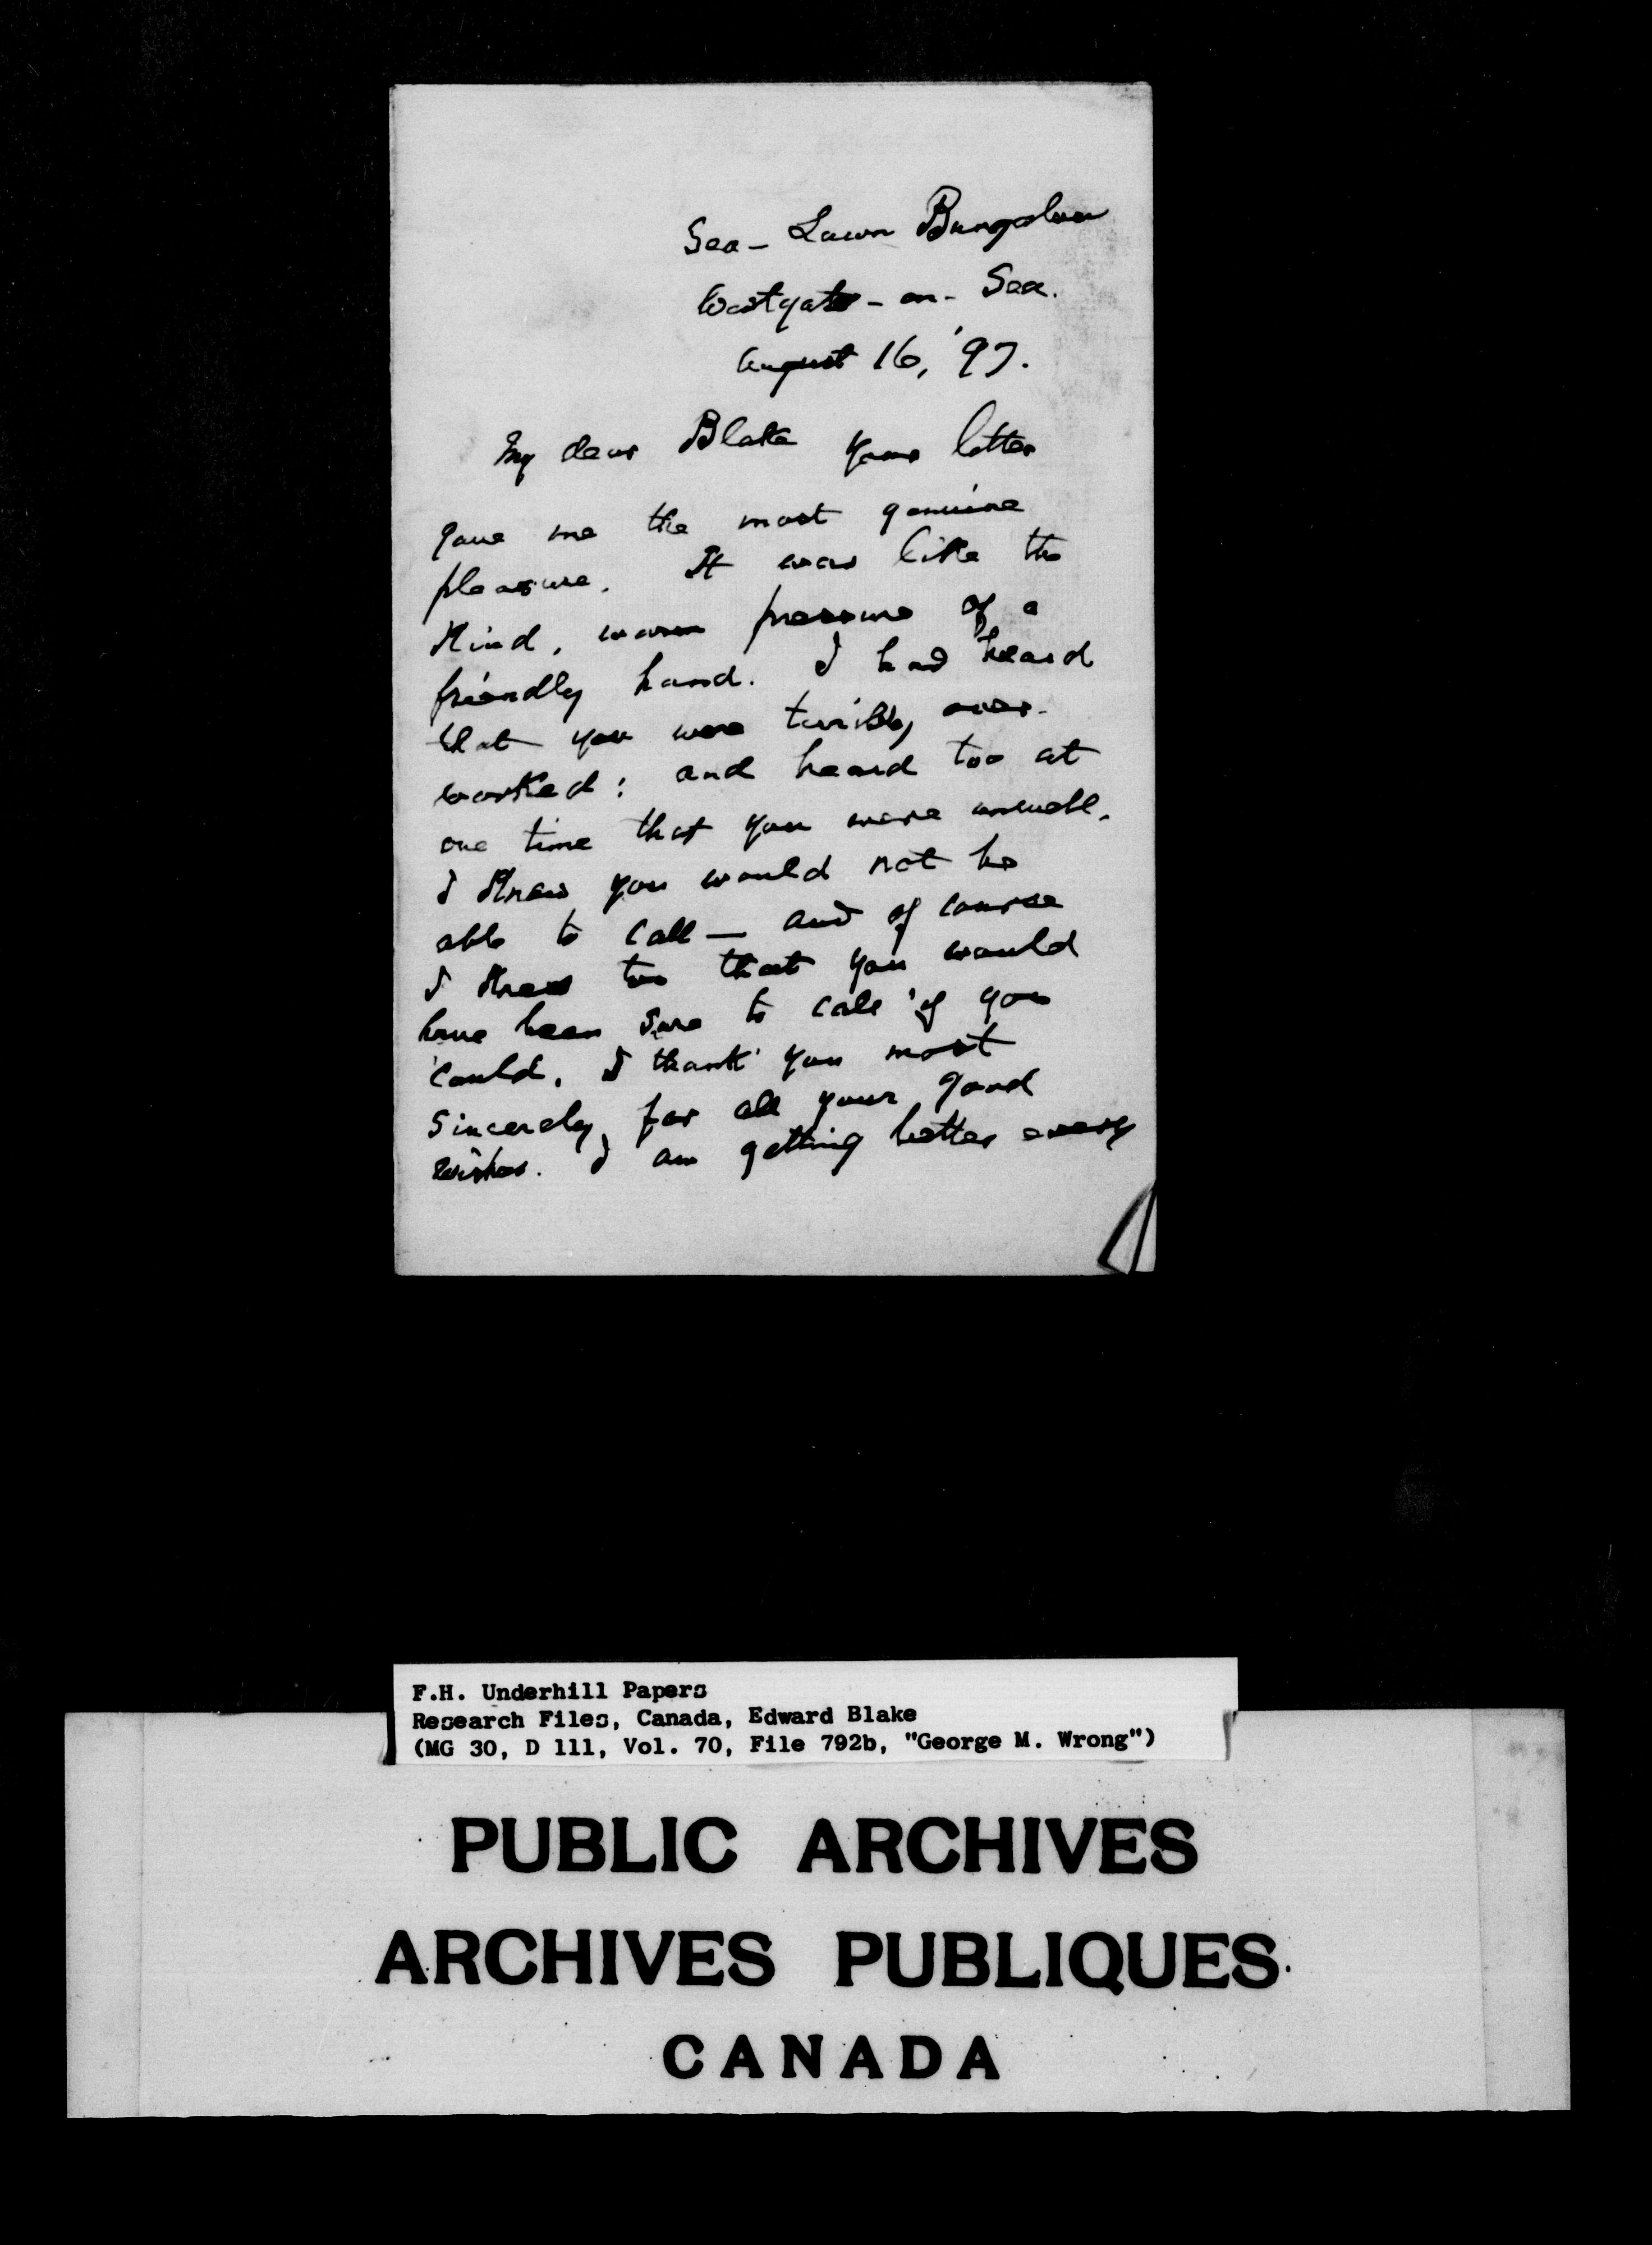 Sea-Lawn Bungalow
Westgate-on-Sea.
August 16, '97.
My dear Blake your letter
gave me the most genuine
pleasure. It was like the
kind, warm pressure of a
friendly hand. I had heard
that you were terribly over-
worked; and heard too at
one time that you were unwell.
I knew you would not be
able to call — and of course
I knew too that you would
have been sure to call if you
could. I thank you most
sincerely for all your good
wishes. I am getting better every
F.H. Underhill Papers
Research Files, Canada, Edward Blake
(MG 30, D 111, Vol. 70, File 792b, "George M. Wrong")
PUBLIC ARCHIVES
ARCHIVES PUBLIQUES
CANADA